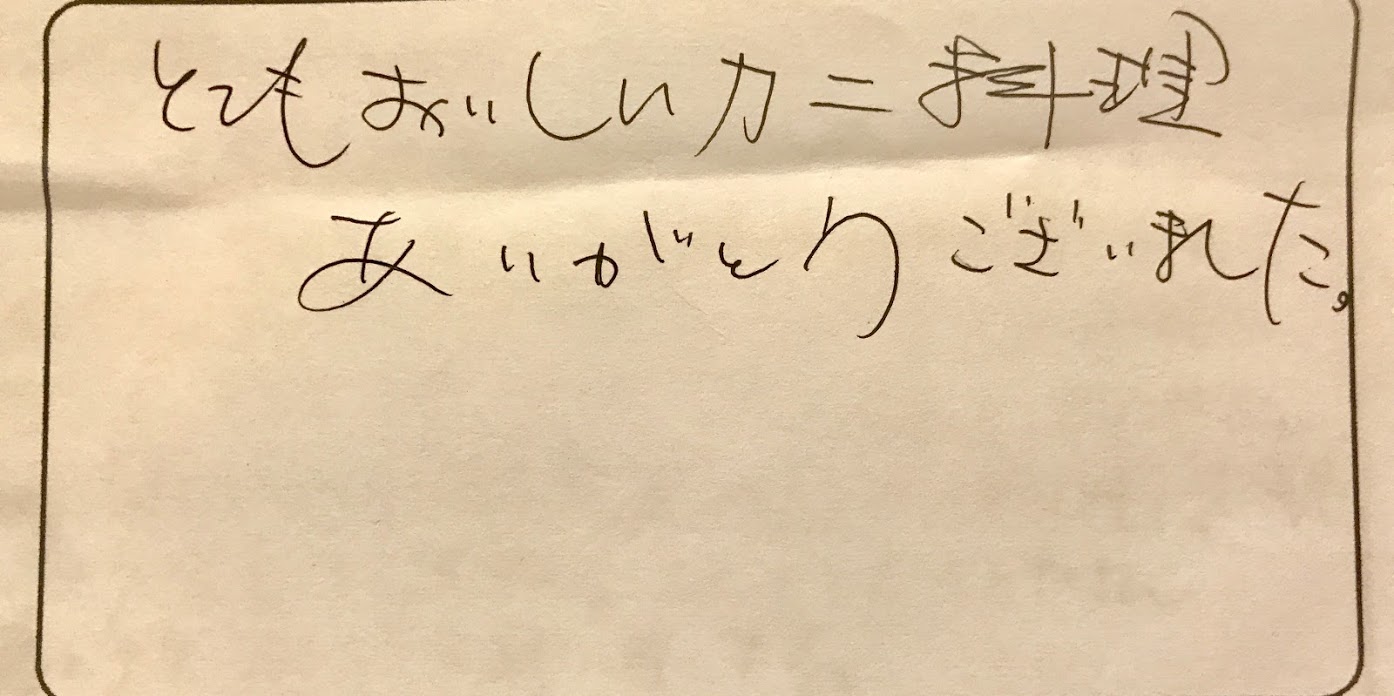 とてもおいしいカニ料理
ありがとうございました。